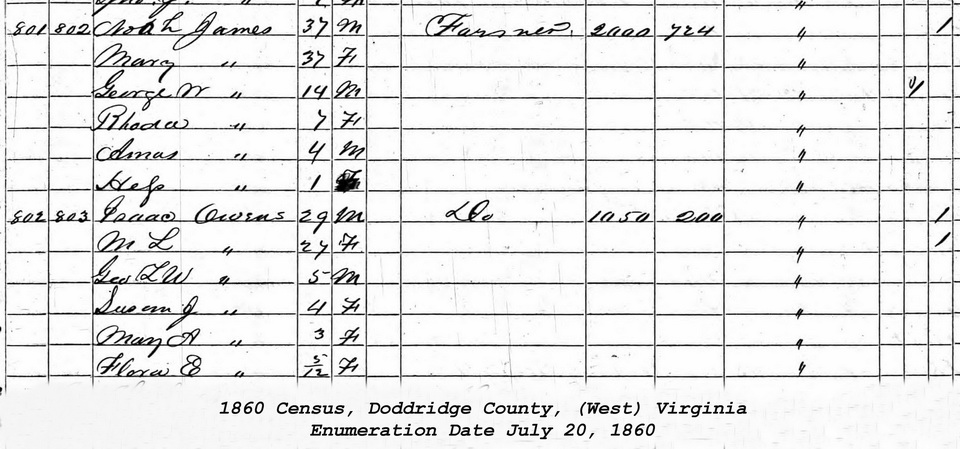 801 802 Noah James 37 M Farmer 2000 724 " 1
Mary " 37 F "
George W " 14 M " 1
Rhoda " 7 F "
Amas " 4 M "
" 1 "
802 803 Isaac Owens 29 M Do 1050 200 " 1
M L " 27 F " 1
Geo L W " 5 M "
Susan J " 4 F "
Mary A " 3 F "
Flora E " 5/12 F "
1860 Census, Doddridge County, (West) Virginia
Enumeration Date July 20, 1860